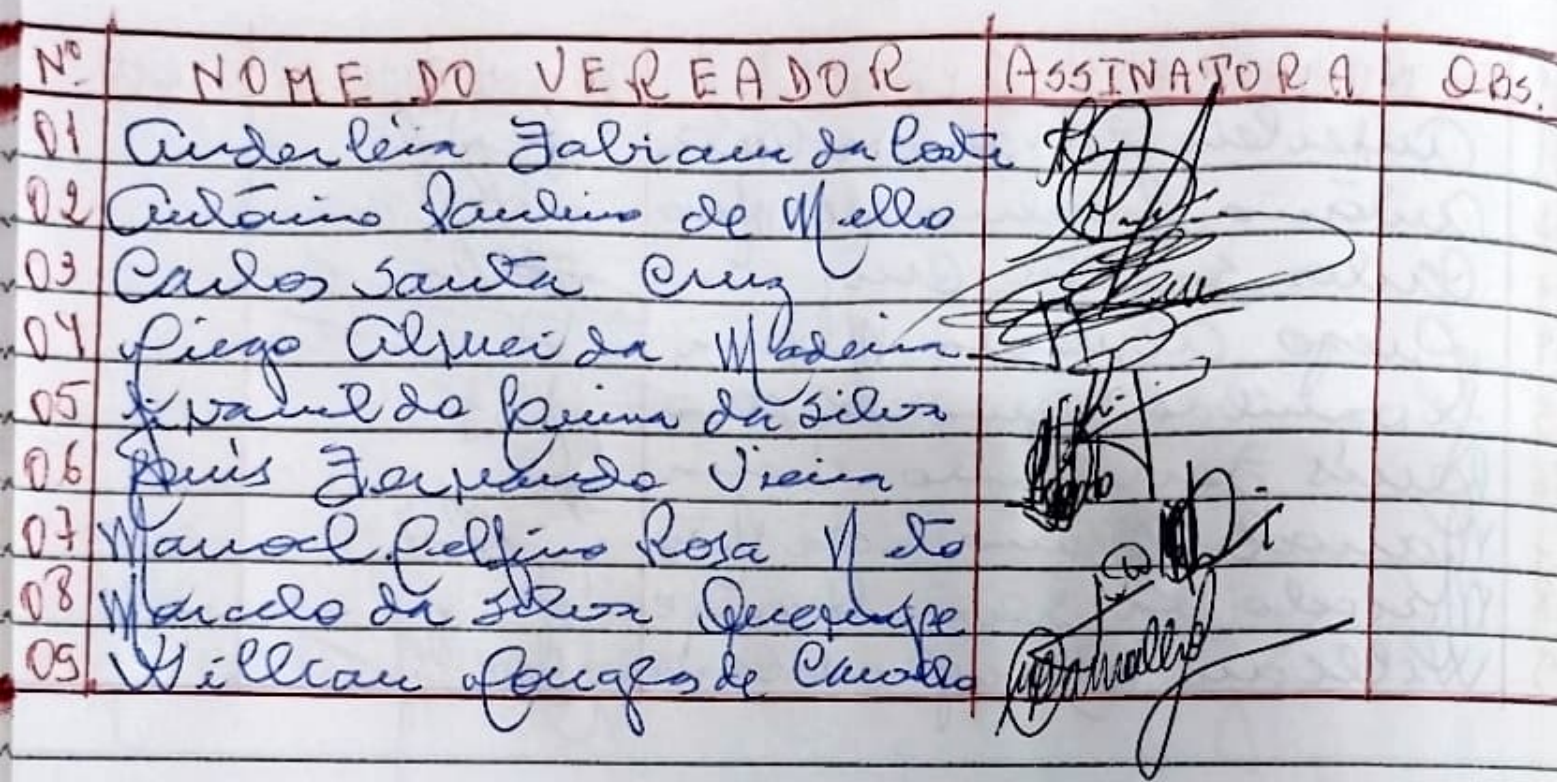 Nº NOME DO VEREADOR ASSINATURA OBS.
01 Anderléia Fabiana da Costa
02 Antônio Paulino de Mello
03 Carlos Santa Cruz
04 Diego Almeida Madeira
05 da Silva
06 Luís Fernando Vieira
07 Manoel Delfino Rosa Neto
08 Marcelo da Silva
09 Willian Douglas de Carvalho